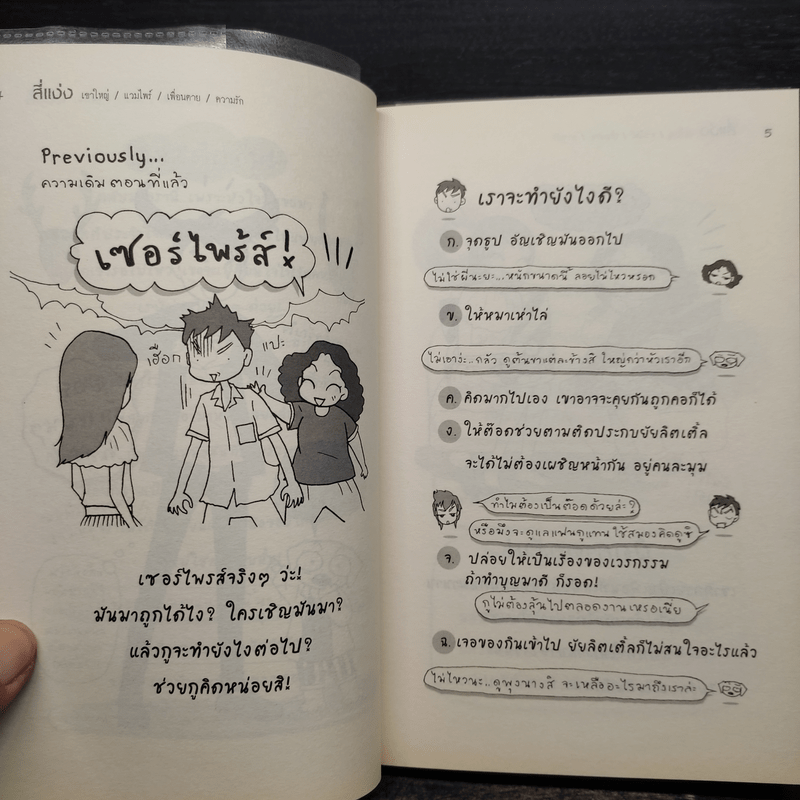 สี่แง่ง เขาใหญ่ / แวมไพร์ / เพื่อนตาย / ความรัก
Previously...
ความเดิม ตอนที่แล้ว
เซอร์ไพร้ส์!
เฮือก
แปะ
เซอร์ไพรส์จริงๆ ว่ะ!
มันมาถูกได้ไง? ใครเชิญมันมา?
แล้วกูจะทำยังไงต่อไป?
ช่วยกูคิดหน่อยสิ!
5
เราจะทำยังไงดี?
ก. จุดธูป อัญเชิญมันออกไป
ไม่ใช่ผีนะยะ...หนักขนาดนี้ ลอยไม่ไหวหรอก
ข. ให้หมาเห่าไล่
ไม่เอาง่ะ..กลัว ดูต้นขาแต่ละข้างสิ ใหญ่กว่าหัวเราอีก
ค. คิดมากไปเอง เขาอาจจะคุยกันถูกคอก็ได้
ง. ให้ต๊อดช่วยตามติดประกบยัยลิตเติ้ล
จะได้ไม่ต้องเผชิญหน้ากัน อยู่คนละมุม
ทำไมต้องเป็นต๊อดด้วยล่ะ?
หรือมึงจะดูแลแฟนกูแทน ใช้สมองคิดดูซิ
จ. ปล่อยให้เป็นเรื่องของเวรกรรม
ถ้าทำบุญมาดี ก็รอด!
กูไม่ต้องลุ้นไปตลอดงานเหรอเนี่ย
ฉ. เจอของกินเข้าไป ยัยลิตเติ้ลก็ไม่สนใจอะไรแล้ว
ไม่ไหวนะ..ดูพุงนางสิ จะเหลืออะไรมาถึงเราล่ะ